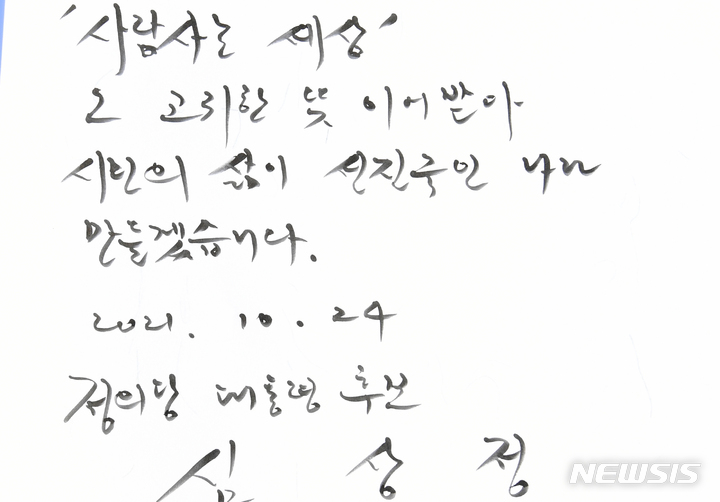 '사람사는 세상'
그 고귀한 뜻 이어받아
시민의 삶이 선진국인 나라
만들겠습니다.
2021. 10. 24
정의당 대통령 후보
심 상 정
NEWSIS